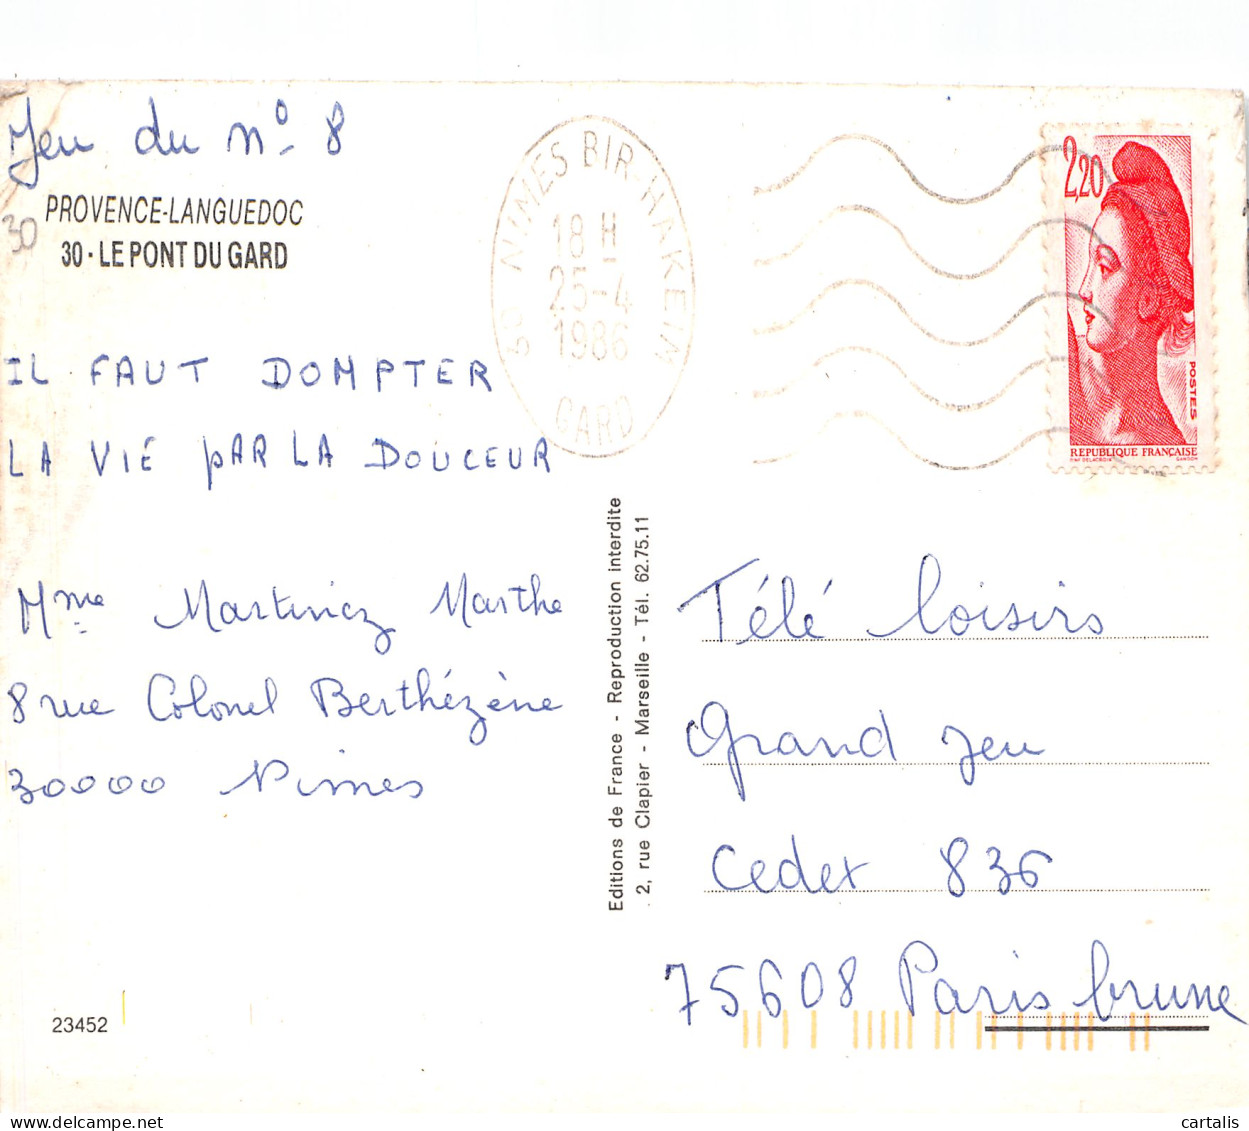 Jeu du nº 8
PROVENCE-LANGUEDOC
30
30 - LE PONT DU GARD
IL FAUT DOMPTER
LA VIE PAR LA DOUCEUR
Mme Martinez Marthe
8 rue Colonel Berthézène
30000 Nimes
23452
NIMES BIR-HAKEIM
18 H
25-4
1986
GARD
2,20
POSTES
REPUBLIQUE FRANÇAISE
D'AP. DELACROIX GANDON
Editions de France - Reproduction interdite
2, rue Clapier - Marseille - Tél. 62.75.11
Télé loisirs
Grand Jeu
Cedex 836
75608 Paris brune
delcampe.net
cartalis